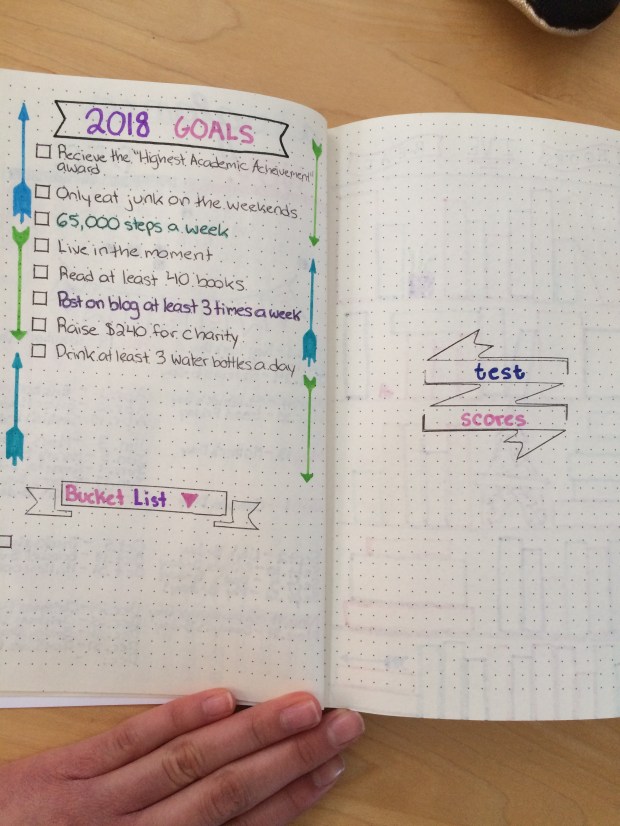 2018 GOALS
Recieve the "Highest Academic Acheivement"
award
Only eat junk on the weekends
65,000 steps a week
Live in the moment
Read at least 40 books
Post on blog at least 3 times a week
Raise $240 for charity
Drink at least 3 water bottles a day
Bucket List
test
scores